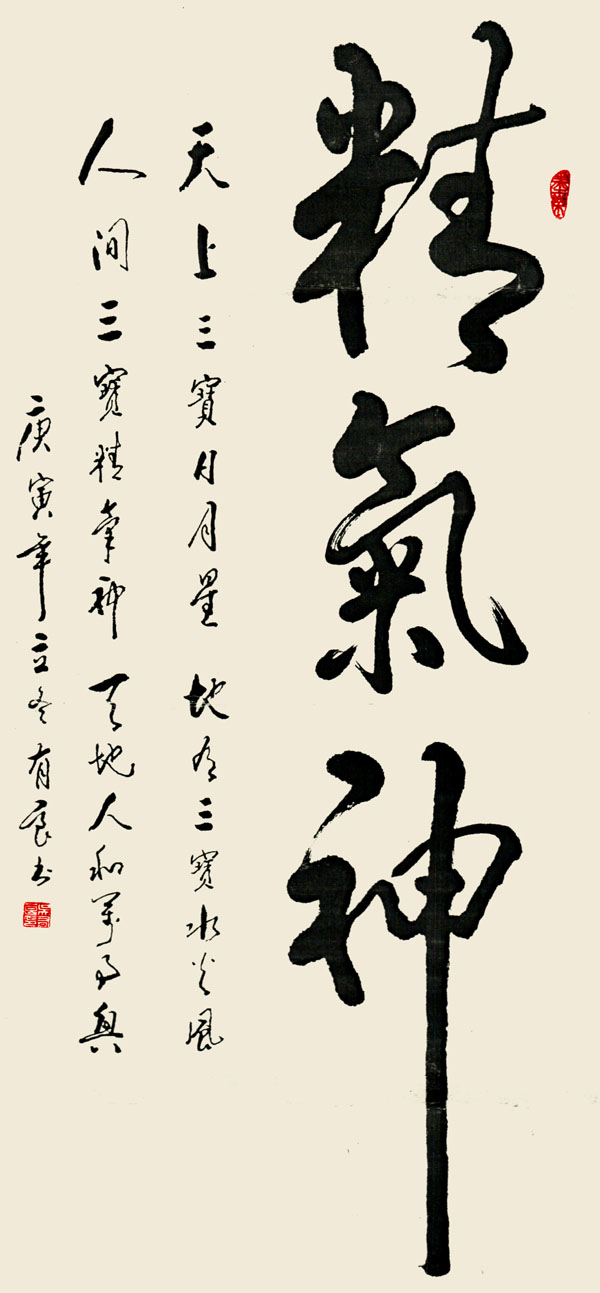 精氣神
天上三寶日月星地有三寶水火風
人间三寶精氣神天地人和万事興
庚寅年立冬有良书